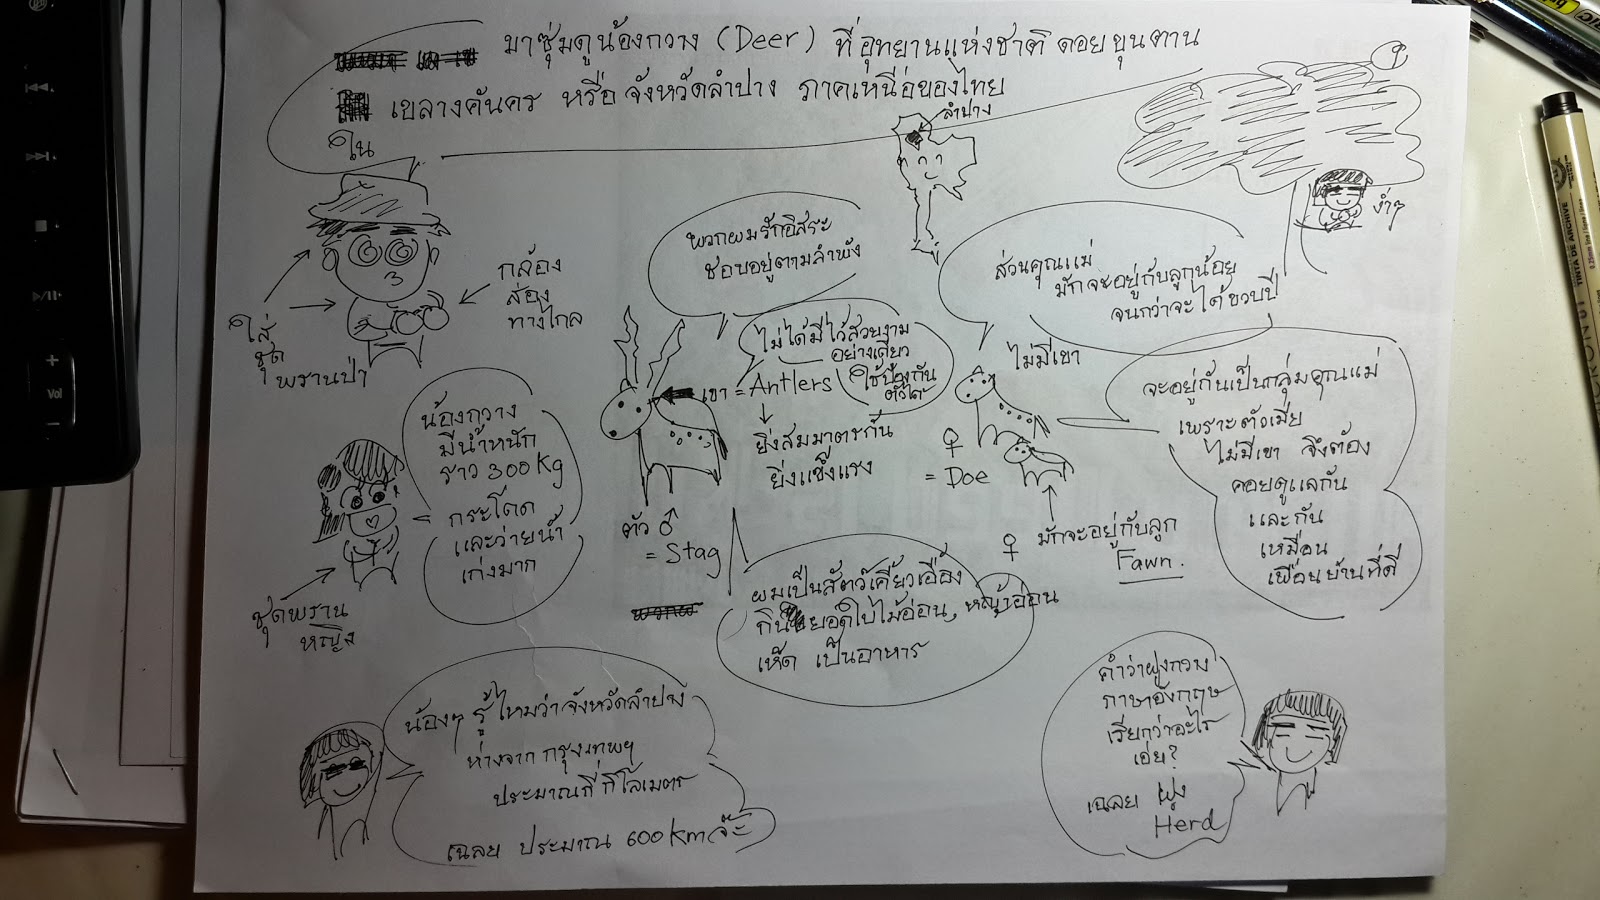 มาซุ่มดูน้องกวาง (Deer) ที่อุทยานแห่งชาติ ดอยขุนตาน
ใน เขลางค์นคร หรือ จังหวัดลำปาง ภาคเหนือของไทย
ลำปาง
1
ง่ำๆ
ใส่
ชุด
พรานป่า
กล้อง
ส่อง
ทางไกล
พวกผมรักอิสระ
ชอบอยู่ตามลำพัง
ส่วนคุณแม่
มักจะอยู่กับลูกน้อย
จนกว่าจะได้ขวบปี
ไม่ได้มีไว้สวยงาม
อย่างเดียว
ใช้ป้องกัน
ตัวได้
เขา = Antlers
ยิ่งสมมาตรกัน
ยิ่งแข็งแรง
ตัว ♂
= Stag
ไม่มีเขา
♀
= Doe
♀ มักจะอยู่กับลูก
Fawn.
จะอยู่กันเป็นกลุ่มคุณแม่
เพราะตัวเมีย
ไม่มีเขา จึงต้อง
คอยดูแลกัน
และกัน
เหมือน
เพื่อนบ้านที่ดี
น้องกวาง
มีน้ำหนัก
ราว 300 Kg
กระโดด
และว่ายน้ำ
เก่งมาก
ชุดพราน
หญิง
ผมเป็นสัตว์เคี้ยวเอื้อง
กินยอดใบไม้อ่อน, หญ้าอ่อน
เห็ด เป็นอาหาร
น้องๆ รู้ไหมว่าจังหวัดลำปาง
ห่างจาก กรุงเทพฯ
ประมาณกี่กิโลเมตร
เฉลย ประมาณ 600 Km จ้ะ
คำว่าฝูงกวาง
ภาษาอังกฤษ
เรียกว่าอะไร
เอ่ย?
เฉลย ฝูง
Herd
Vol
TINTA DE ARCHIVE